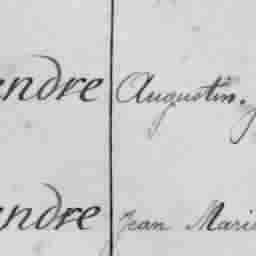 endre Augustin.
endre Jean Marie